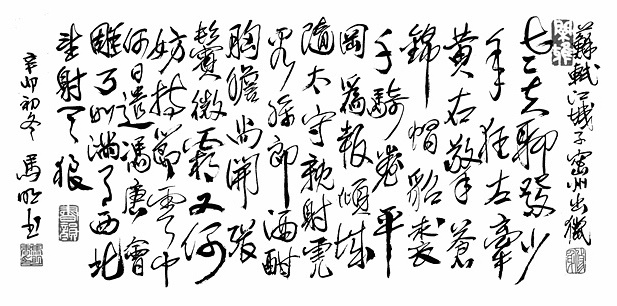 蘇軾江城子密州出獵
老夫聊發少
年狂左牽
黄右擎蒼
錦帽貂裘
千騎卷平
岡爲報傾城
隨太守親射虎
看孫郎酒酣
胸膽尚開張
鬢微霜又何
妨持節雲中
何日遣馮唐會
雕弓如滿月西北
望射天狼
辛卯初冬 馬明書